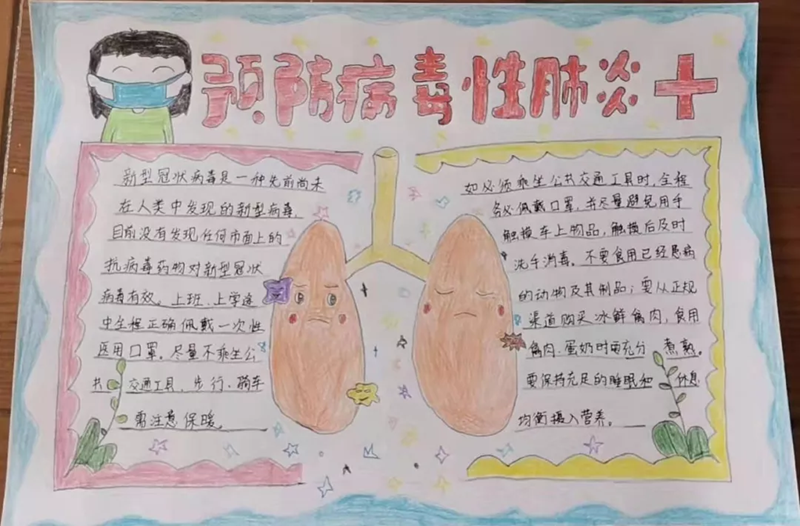 预防病毒性肺炎
新型冠状病毒是一种先前尚未
在人类中发现的新型病毒,
目前没有发现任何市面上的
抗病毒药物对新型冠状
病毒有效。上班、上学途
中全程正确佩戴一次性
医用口罩。尽量不乘坐公
共交通工具,步行、骑车
需注意保暖。
如必须乘坐公共交通工具时,全程
务必佩戴口罩,并尽量避免用手
触摸车上物品,触摸后及时
洗手消毒。不要食用已经患病
的动物及其制品;要从正规
渠道购买冰鲜禽肉,食用
禽肉、蛋奶时要充分煮熟。
要保持充足的睡眠和休息
均衡摄入营养。